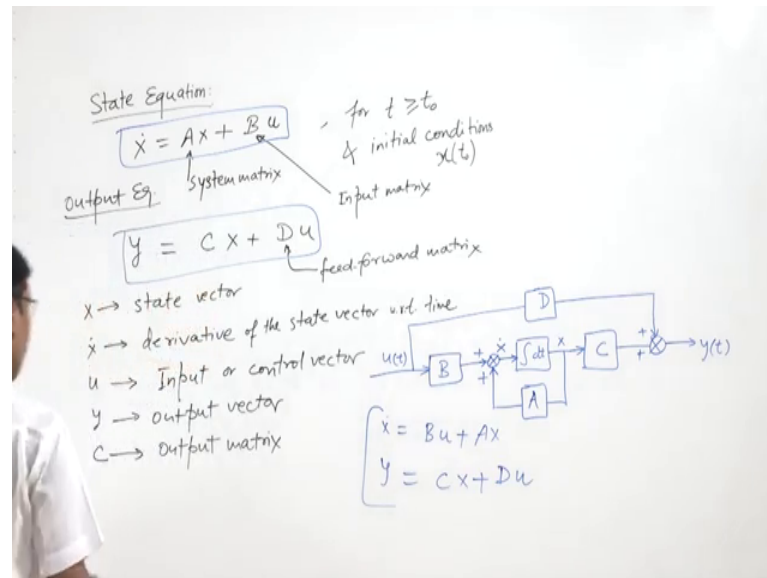 State Equation:
ẋ = Ax + Bu , for t ≥ t₀
& initial conditions
x(t₀)
System matrix
Input matrix
Output Eq.
y = Cx + Du
feed-forward matrix
x → state vector
ẋ → derivative of the state vector w.r.t. time
u → Input or control vector
y → output vector
C → output matrix
D
u(t) B + + ẋ ∫dt x C + + y(t)
A
ẋ = Bu + Ax
y = Cx + Du